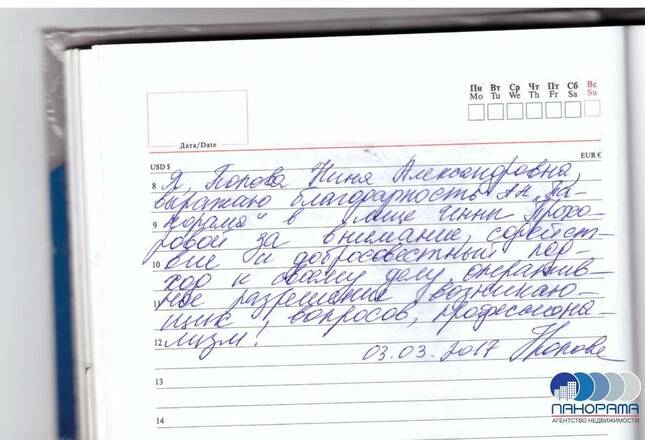 Пн Вт Ср Чт Пт Сб Вс
Mo Tu We Th Fr Sa Su
Дата/Date
USD $ EUR €
8 Я, Попова Нина Александровна,
выражаю благодарность АН "Па-
9 норама" в лице Инны Прохо-
ровой за внимание, содейст-
10 вие и добросовестный под-
ход к своему делу, оператив-
11 ное разрешение возникаю-
щих вопросов, профессиона-
12 лизм!
03.03.2017 НПопова
13
14
ПАНОРАМА
АГЕНТСТВО НЕДВИЖИМОСТИ